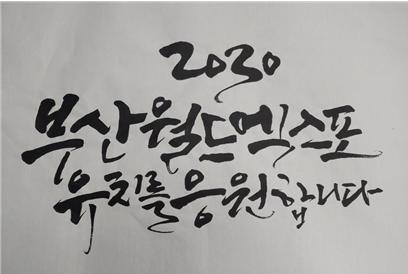 2030
부산월드엑스포
유치를 응원합니다